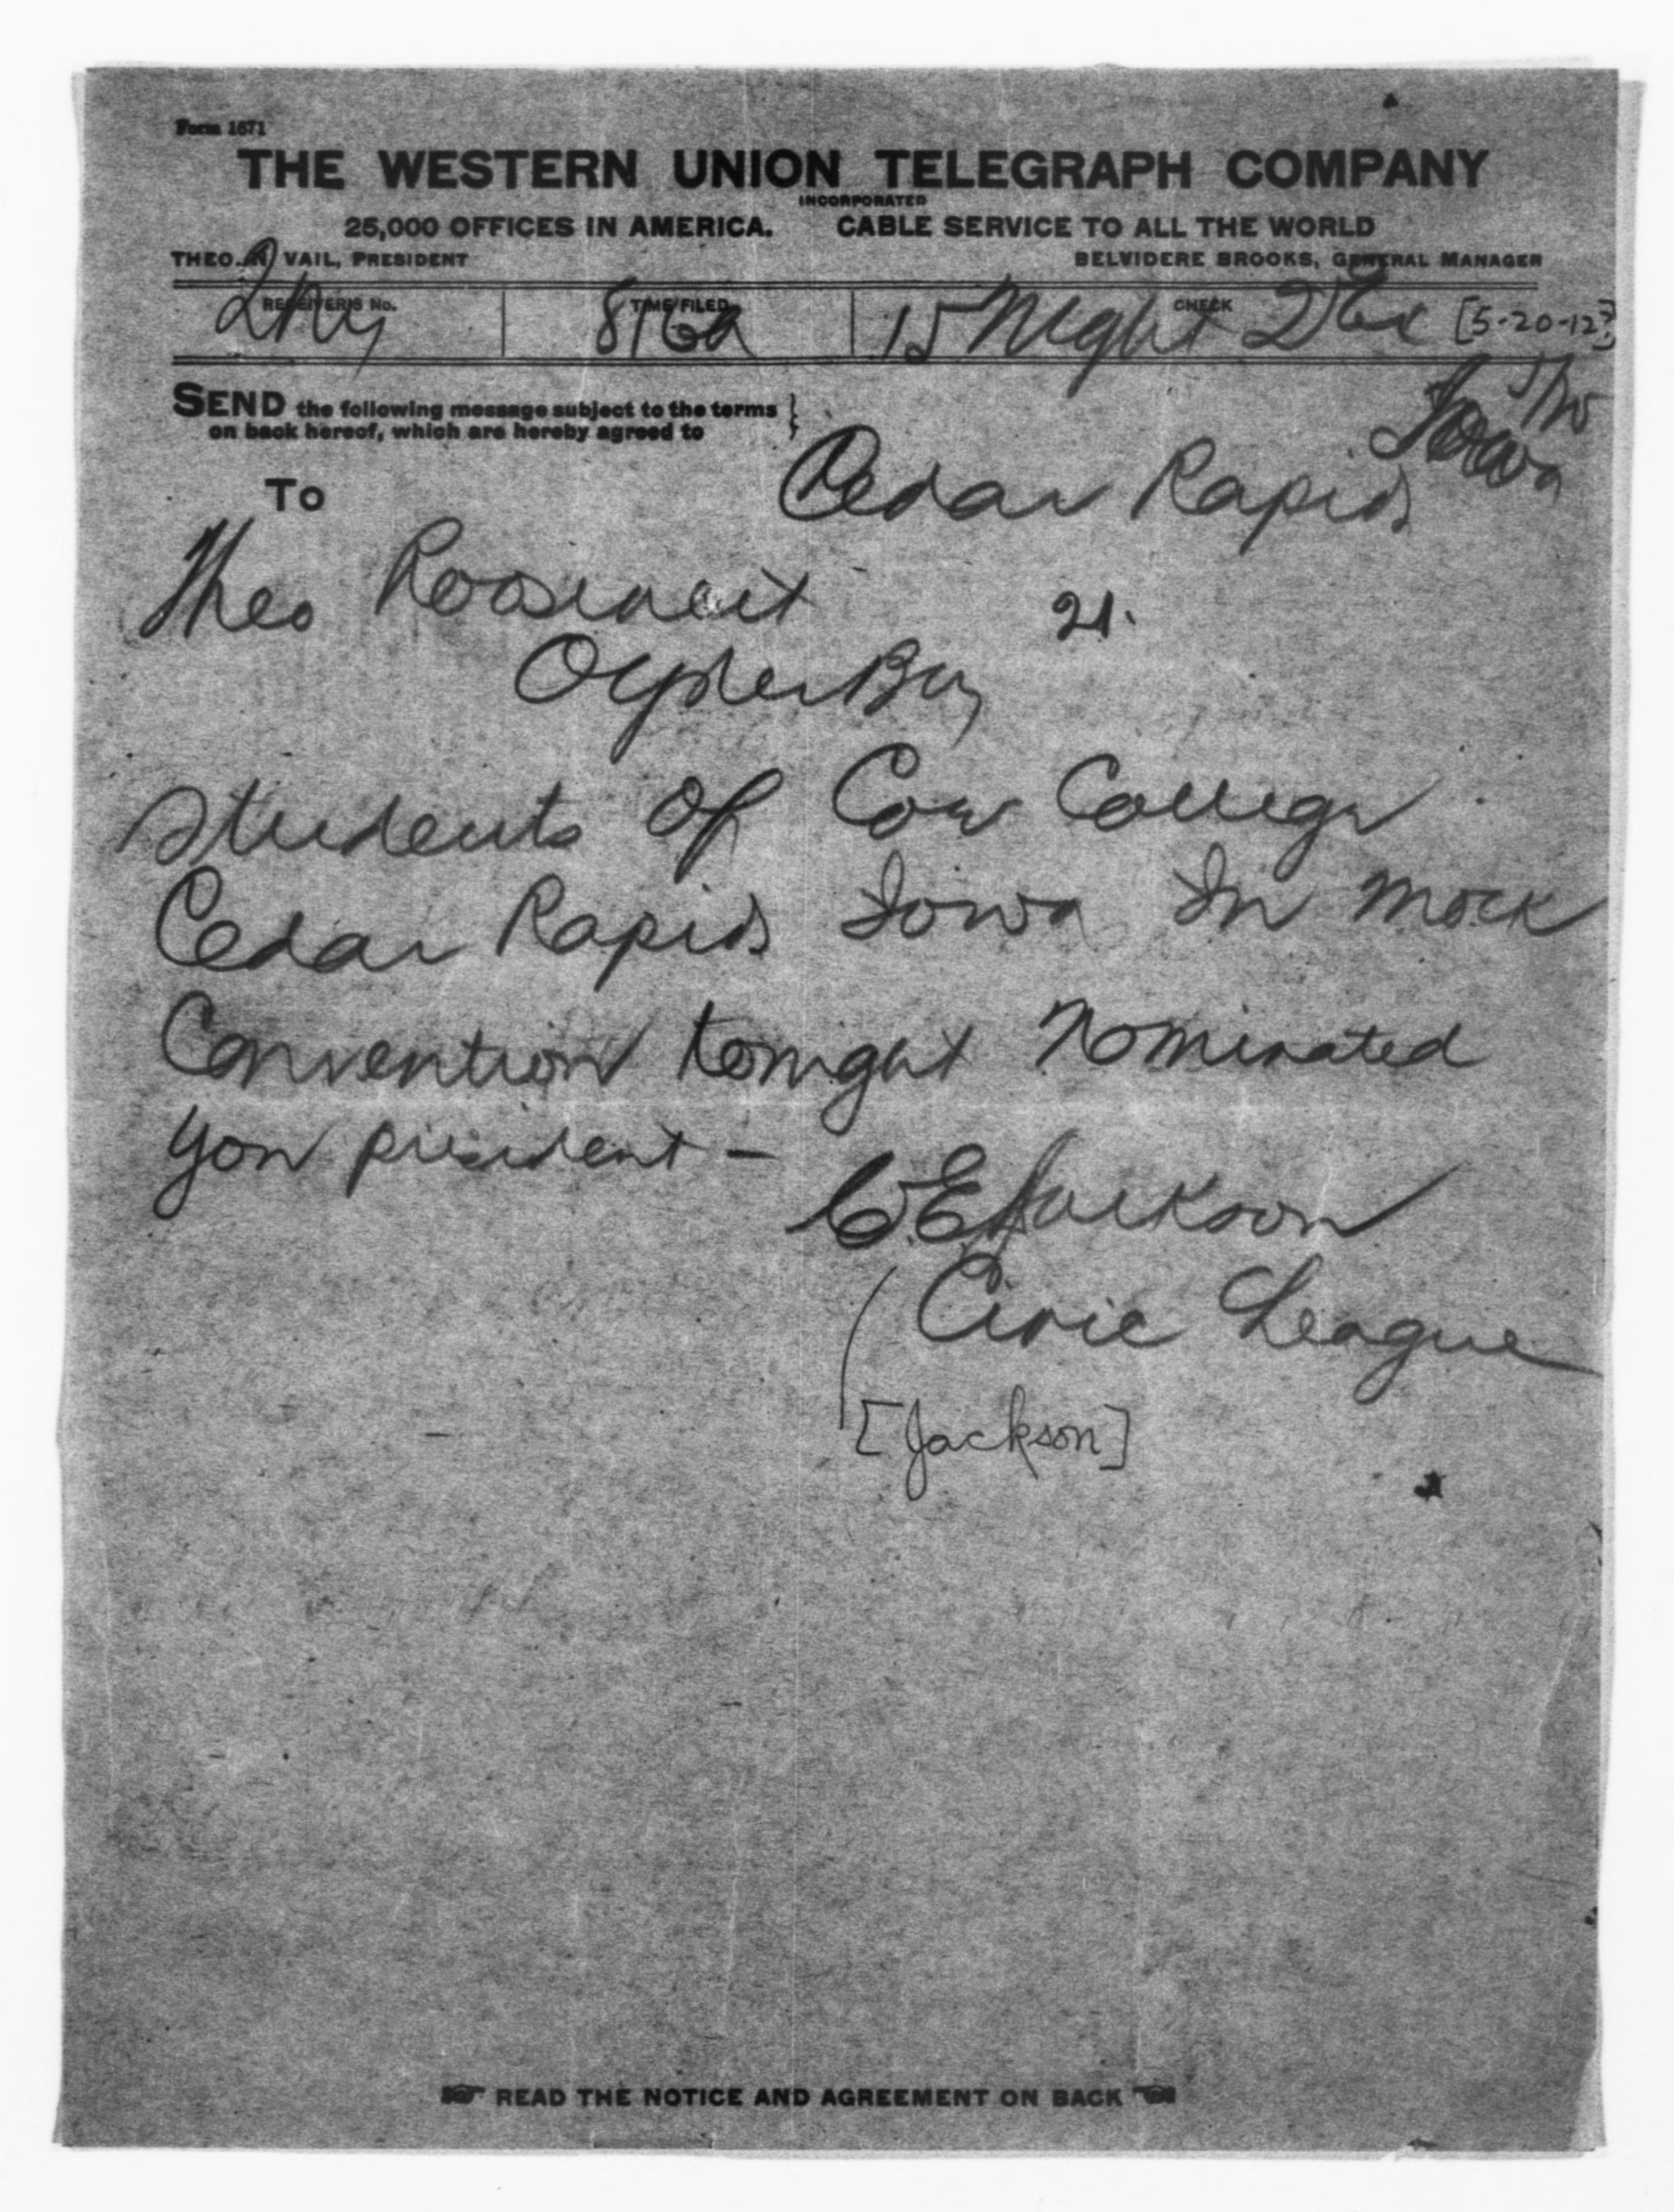 Form 1671
THE WESTERN UNION TELEGRAPH COMPANY
INCORPORATED
25,000 OFFICES IN AMERICA. CABLE SERVICE TO ALL THE WORLD
THEO. N. VAIL, PRESIDENT BELVIDERE BROOKS, GENERAL MANAGER
RECEIVER'S No. TIME FILED CHECK
816a 15 Night [5-20-12?]
SEND the following message subject to the terms
on back hereof, which are hereby agreed to
Iowa
Cedar Rapids
To
Theo Roosevelt 21.
Oyster Bay
Students of Coe College
Cedar Rapids Iowa In mock
Convention tonight nominated
you president -
C.E. Jackson
Civic League
[Jackson]
READ THE NOTICE AND AGREEMENT ON BACK